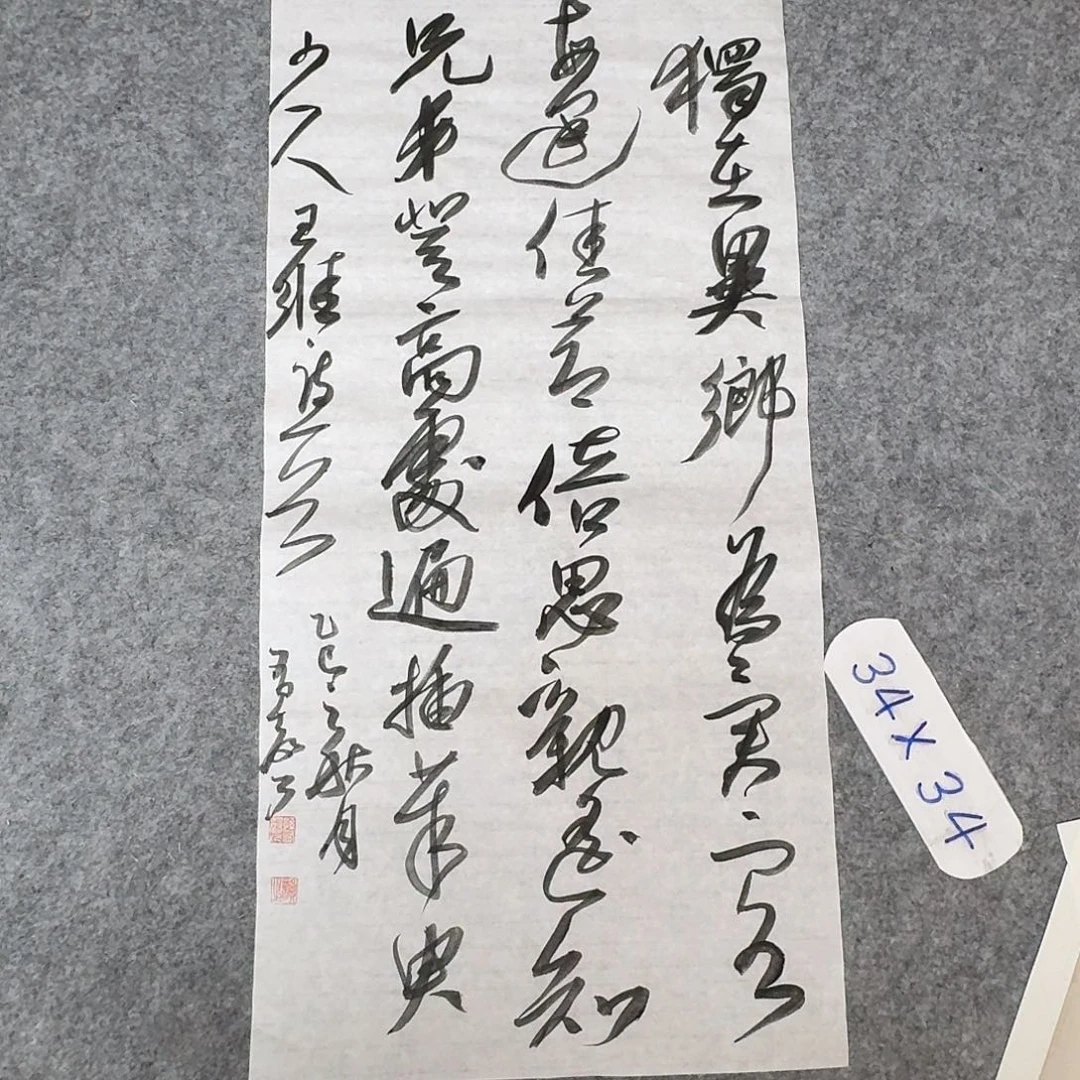 獨在異鄉為異客
每逢佳節倍思親遙知
兄弟登高處遍插茱萸
少一人 王維詩一首
乙巳之秋月
34×34